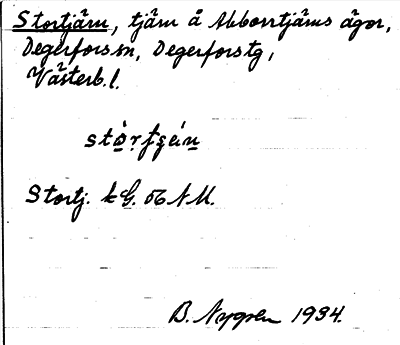 Stortjärn, tjärn å Abborrtjärns ägor,
Degerfors sn, Degerfors tg,
Västerb. l.
Stortj. kG. 56 NM.
B. Nygren 1934.